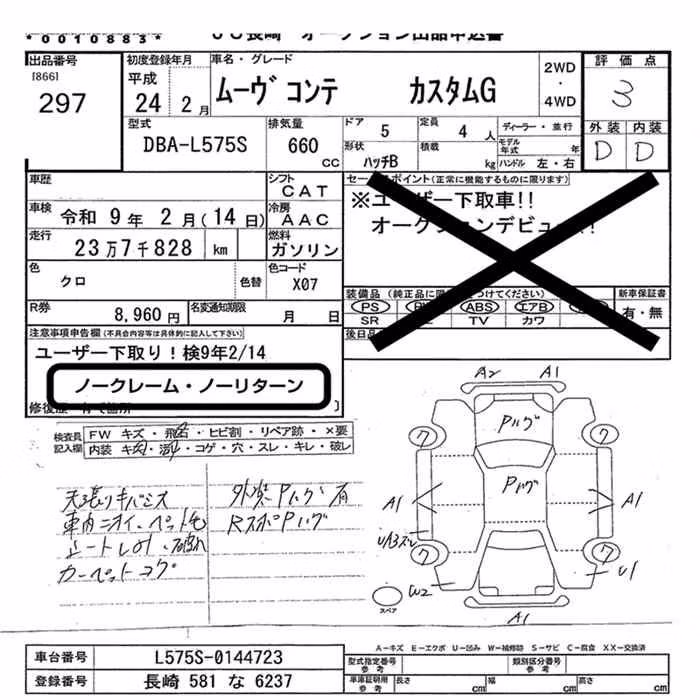 *0010883*
出品番号
[866]
297
初度登録年月
平成
24 2月
車名・グレード
ムーヴ コンテ カスタムG
2WD
・
4WD
評価点
3
外装 内装
D D
型式
DBA-L575S
排気量
660
CC
ドア 5
定員 4人
ディーラー・並行
モデル年式 年
形状 ハッチB
積載 kg
ハンドル 左・右
車歴
シフト
CAT
車検 令和 9年 2月(14日)
冷房
AAC
走行 23万7千828 km
燃料
ガソリン
色
クロ
色替
色コード
X07
R券
8,960円
名変通知期限
月 日
セールスポイント(正常に機能するものに限ります)
※ユーザー下取車!!
オークションデビュー!!
装備品
新車保証書
PS ABS エアB
SR TV カワ
有・無
後日品
注意事項申告欄(不具合内容等は具体的に記入して下さい)
ユーザー下取り!検9年2/14
ノークレーム・ノーリターン
検査員記入欄
FW キズ・飛石・ヒビ割・リペア跡・×要
内装 コゲ・穴・スレ・キレ・破レ
天張りキバミス
車内ニオイ、ペット毛
カーペットコゲ
外装Pハゲ有
RスポPハゲ
A2 A1
Pハゲ
ワ ワ
Pハゲ
A1 A1
UA3スレ
ワ ワ
W2 U1
A1
スペア
A-キズ E-エクボ U-凹み W-補修跡 S-サビ C-腐食 XX-交換済
車台番号 L575S-0144723
登録番号 長崎 581 な 6237
型式指定番号
参考
類別区分番号
参考
車庫証明用
参考
長さ cm
幅 cm
高さ cm